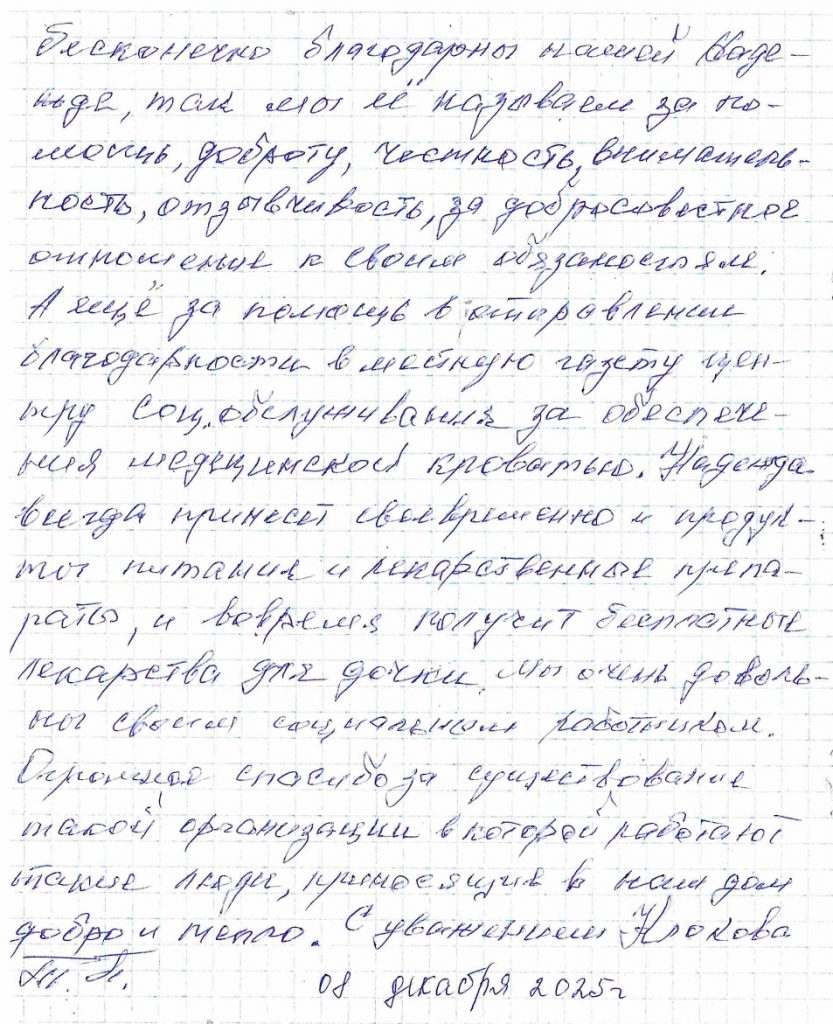 бесконечно благодарны нашей Наде-
ньде, так мы её называем за по-
мощь, доброту, честность, вниматель-
ность, отзывчивость, за добросовестное
отношение к своим обязаностям.
А ещё за помощь в отправлении
благодарности в местную газету цен-
тру соц. обслуживания за обеспече-
ния медицинской кроватью. Надежда
всегда принесёт своевременно и продук-
ты питания и лекарственные препа-
раты, и вовремя получит бесплатные
лекарства для дочки, мы очень доволь-
ны своим социальным работником.
Огромное спасибо за существование
такой организации в которой работают
такие люди, приносящие в наш дом
добро и тепло. С уважением
08 декабря 2025г